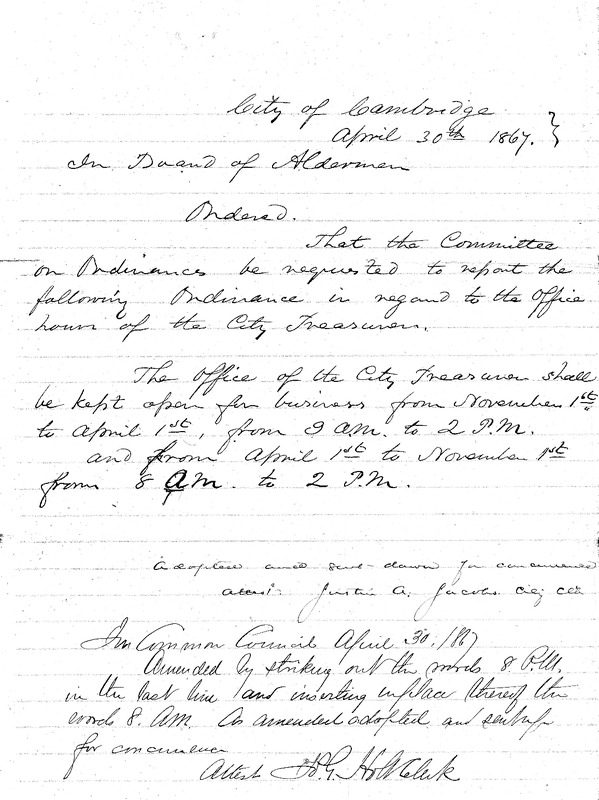 City of Cambridge
April 30th 1867.
In Board of Aldermen
Ordered.
That the Committee
on Ordinances be requested to report the
following Ordinance in regard to the Office
hours of the City Treasurer.
The Office of the City Treasurer shall
be kept open for business from November 1st
to April 1st, from 9 A.M. to 2 P.M.
and from April 1st to November 1st
from 8 A.M. to 2 P.M.
Adopted and sent down for concurrence
Attest: Justin A. Jacobs City Clk
In Common Council April 30. 1867
Amended by striking out the words 8 P.M.
in the last line and inserting in place thereof the
words 8. A.M. As amended adopted and sent up
for concurrence
Attest J.G. Holt Clerk